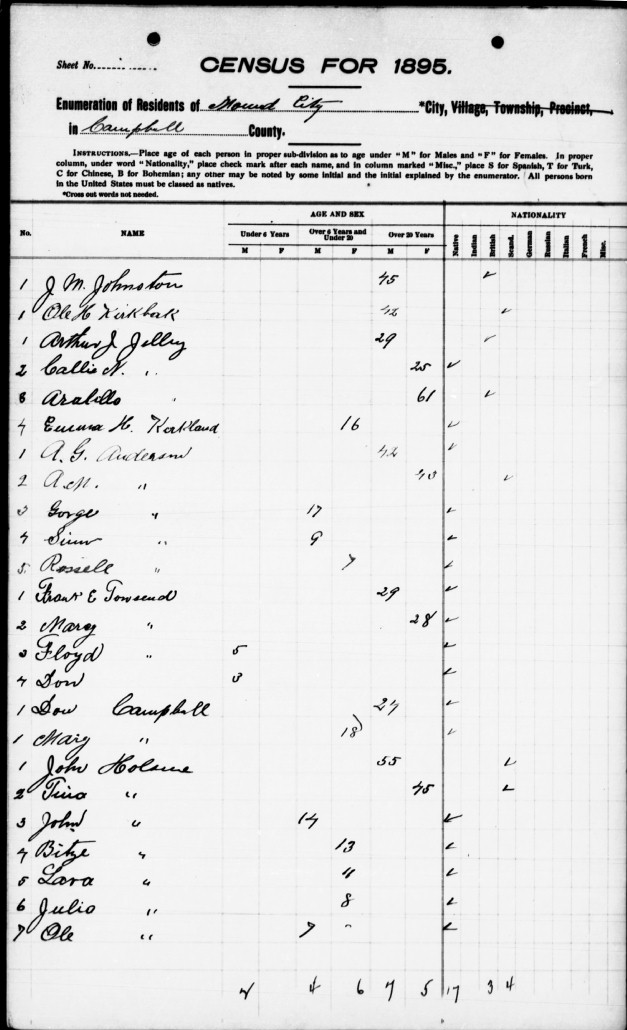 Sheet No.
CENSUS FOR 1895.
Enumeration of Residents of Mound City *City, Village, Township, Precinct,
in Campbell County.
INSTRUCTIONS.—Place age of each person in proper sub-division as to age under "M" for Males and "F" for Females. In proper
column, under word "Nationality," place check mark after each name, and in column marked "Misc.," place S for Spanish, T for Turk,
C for Chinese, B for Bohemian; any other may be noted by some initial and the initial explained by the enumerator. All persons born
in the United States must be classed as natives.
*Cross out words not needed.
AGE AND SEX NATIONALITY
No. NAME Under 6 Years Over 6 Years and Under 20 Over 20 Years Native Indian British Scand. German Russian Italian French Misc.
M F M F M F
1 J. M. Johnston 45 ✓
1 Ole H Kirkbak 42 ✓
1 Arthur J. Jelley 29 ✓
2 Callie N. " 25 ✓
3 Arabillo " 61 ✓
4 Emma H. Kirkland 16 ✓
1 A. G. Anderson 42 ✓
2 A. M. " 43 ✓
3 Gorge " 17 ✓
4 " 9 ✓
5 Rossell " 7 ✓
1 Frank E Towsend 29 ✓
2 Mary " 28 ✓
3 Floyd " 5 ✓
4 Don 3 ✓
1 Dow Campbell 27 ✓
1 Mary " 18 ✓
1 John Holsene 55 ✓
2 Tina " 45 ✓
3 John " 14 ✓
4 Bitze " 13 ✓
5 Lara " 11 ✓
6 Julio " 8 ✓
7 Ole " 7 ✓
2 4 6 7 5 17 3 4